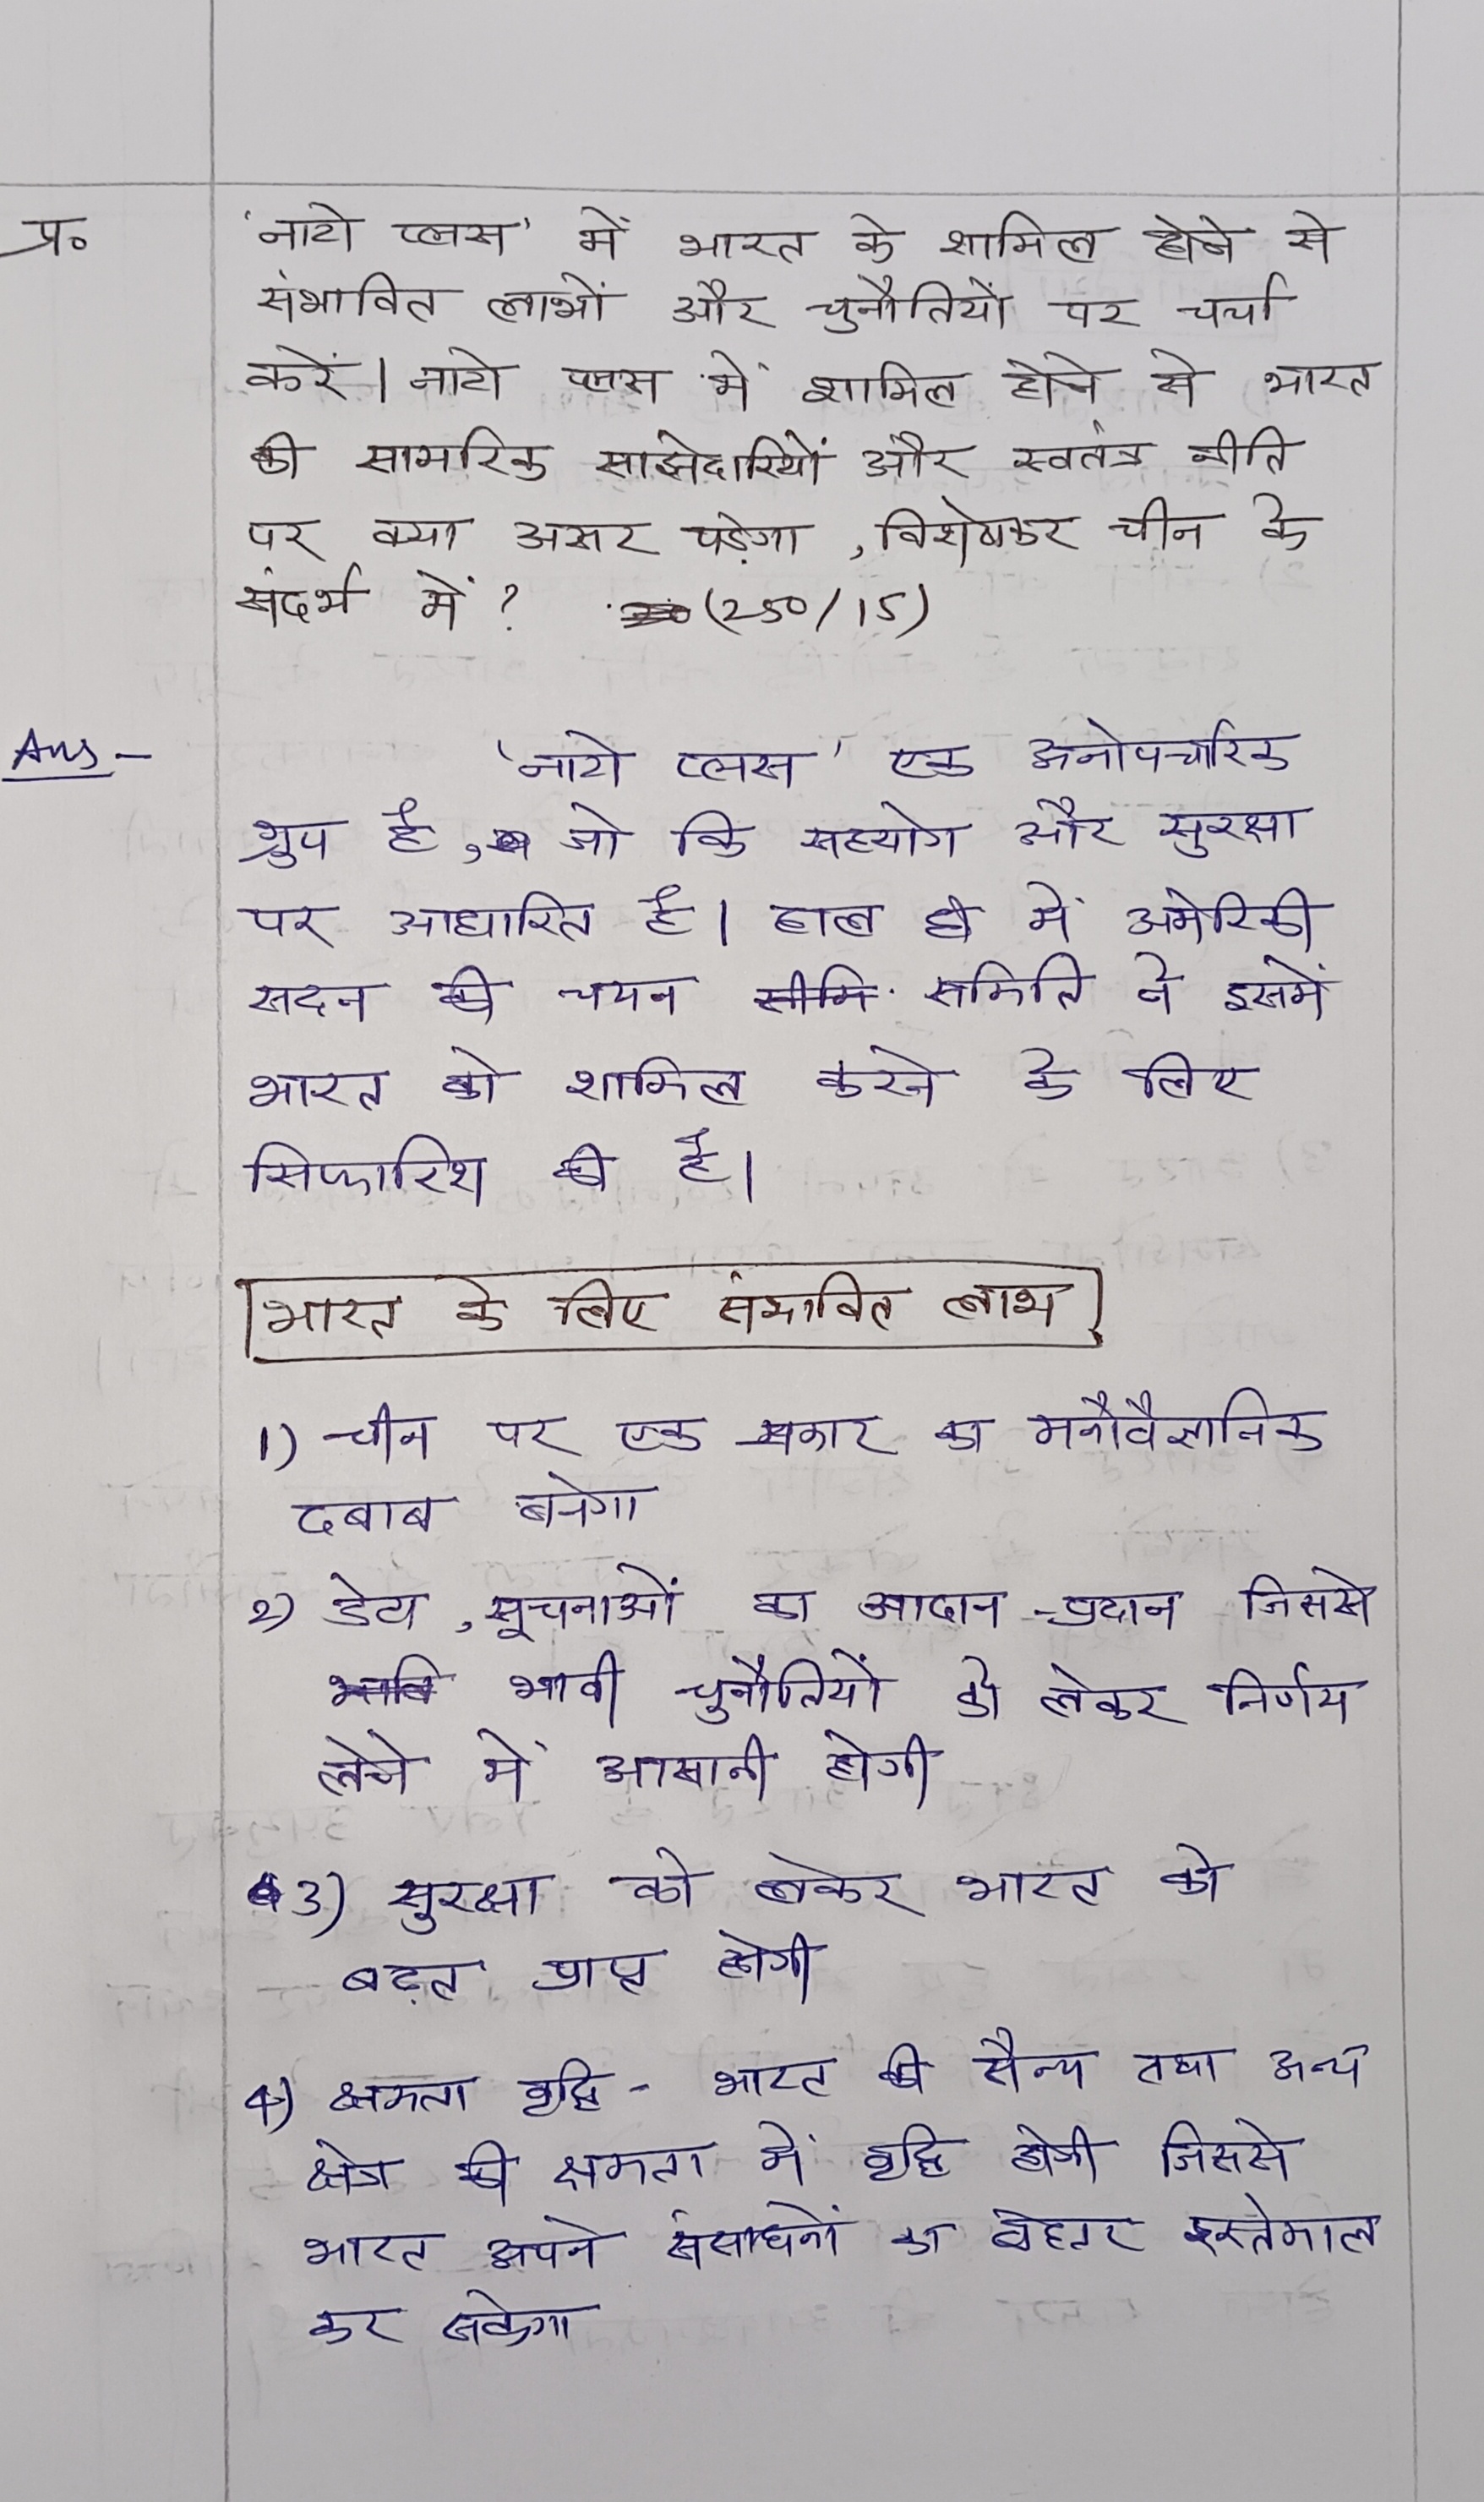 प्र० 'नाटो प्लस' में भारत के शामिल होने से
संभावित लाभों और चुनौतियों पर चर्चा
करें। नाटो प्लस में शामिल होने से भारत
की सामरिक साझेदारियों और स्वतंत्र नीति
पर क्या असर पड़ेगा, विशेषकर चीन के
संदर्भ में? (250/15)
Ans - 'नाटो प्लस' एक अनोपचारिक
ग्रुप है, जो कि सहयोग और सुरक्षा
पर आधारित है। हाल ही में अमेरिकी
सदन की चयन समिति ने इसमें
भारत को शामिल करने के लिए
सिफारिश की है।
भारत के लिए संभावित लाभ
1) चीन पर एक प्रकार का मनौवैज्ञानिक
दबाब बनेगा
2) डेटा, सूचनाओं का आदान-प्रदान जिससे
भावी चुनौतियों को लेकर निर्णय
लेने में आसानी होगी
3) सुरक्षा को लेकर भारत को
बढ़त प्राप्त होगी
4) क्षमता वृद्धि - भारत की सैन्य तथा अन्य
क्षेत्र की क्षमता में वृद्धि होगी जिससे
भारत अपने संसाधनों का बेहतर इस्तेमाल
कर सकेगा